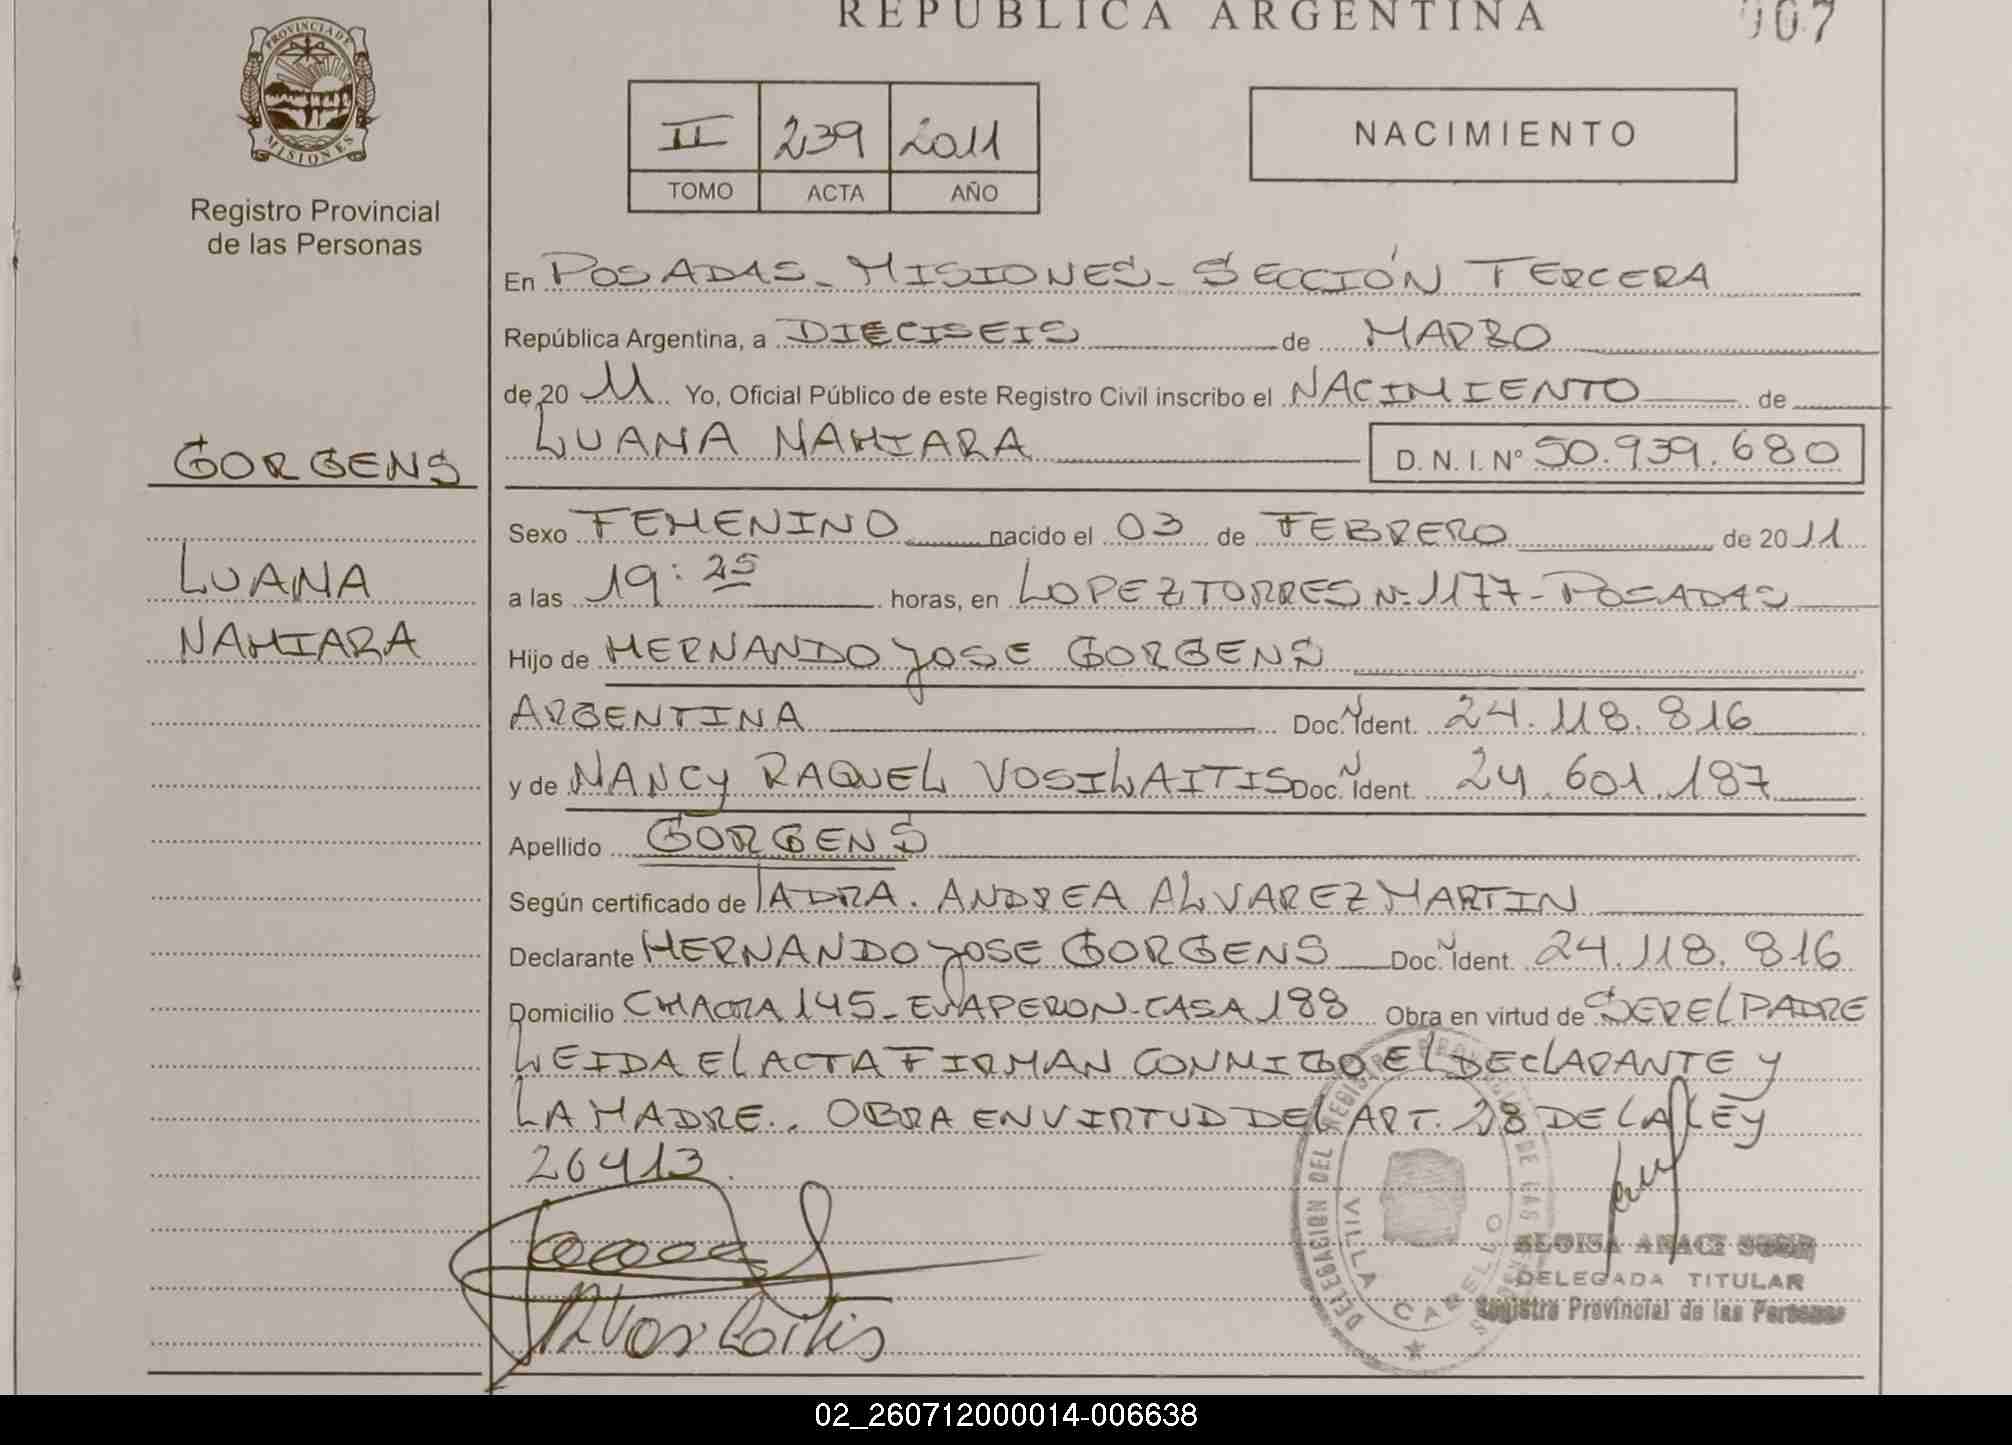 REPUBLICA ARGENTINA
007
PROVINCIA DE
MISIONES
Registro Provincial
de las Personas
II 239 2011
TOMO ACTA AÑO
NACIMIENTO
En POSADAS - MISIONES - SECCIÓN TERCERA
República Argentina, a DIECISEIS de MARZO
de 20 11 Yo, Oficial Público de este Registro Civil inscribo el NACIMIENTO de
LUANA NAHIARA D.N.I. Nº 50.939.680
GORGENS
Sexo FEMENINO nacido el 03 de FEBRERO de 20 11
LUANA
a las 19:25 horas, en LOPEZ TORRES Nº 1177 - POSADAS
NAHIARA
Hijo de HERNANDO JOSE GORGENS
ARGENTINA Doc. N Ident. 24.118.816
y de NANCY RAQUEL VOSILAITIS Doc. N Ident. 24.601.187
Apellido GORGENS
Según certificado de LA DRA. ANDREA ALVAREZ MARTIN
Declarante HERNANDO JOSE GORGENS Doc. N Ident. 24.118.816
Domicilio CHACRA 145 - EVA PERON - CASA 188 Obra en virtud de SER EL PADRE
LEIDA EL ACTA FIRMAN CONMIGO EL DECLARANTE Y
LA MADRE.. OBRA EN VIRTUD DEL ART. 28 DE LA LEY
26413.
DELEGACION DEL REGISTRO PROVINCIAL DE LAS PERSONAS
VILLA CABELLO
DELEGADA TITULAR
Registro Provincial de las Personas
02_260712000014-006638